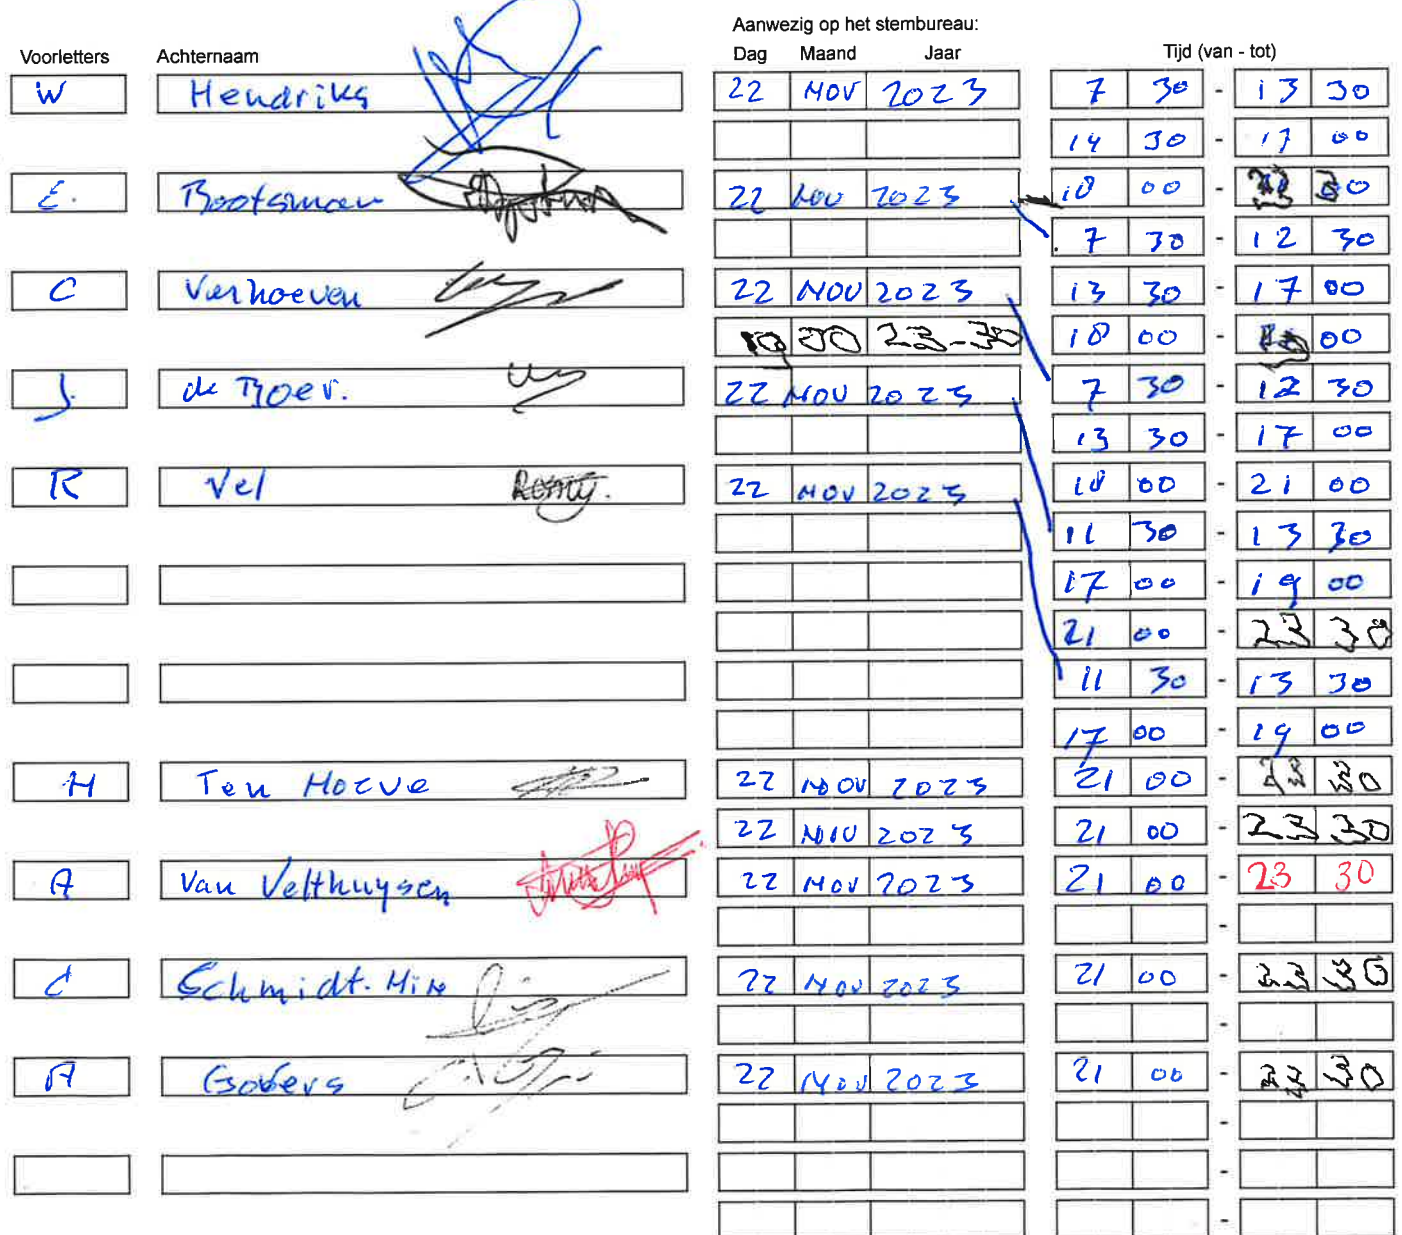 Aanwezig op het stembureau:
Voorletters Achternaam Dag Maand Jaar Tijd (van - tot)
W Hendriks 22 NOV 2023 7 30 - 13 30
14 30 - 17 00
E. Bootsman 22 NOV 2023 18 00 - 30
7 30 - 12 30
C Verhoeven 22 NOV 2023 13 30 - 17 00
19 00 23-30 18 00 - 00
J. de Boer. 22 NOV 2023 7 30 - 12 30
13 30 - 17 00
R Vel 22 NOV 2023 18 00 - 21 00
11 30 - 13 30
17 00 - 19 00
21 00 - 23 30
11 30 - 13 30
17 00 - 19 00
H Ten Hoeve 22 NOV 2023 21 00 - 23 30
22 NOV 2023 21 00 - 23 30
A Van Velthuysen 22 NOV 2023 21 00 - 23 30
-
C Schmidt. Min 22 NOV 2023 21 00 - 23 30
-
A Gobers 22 NOV 2023 21 00 - 23 30
-
-
-